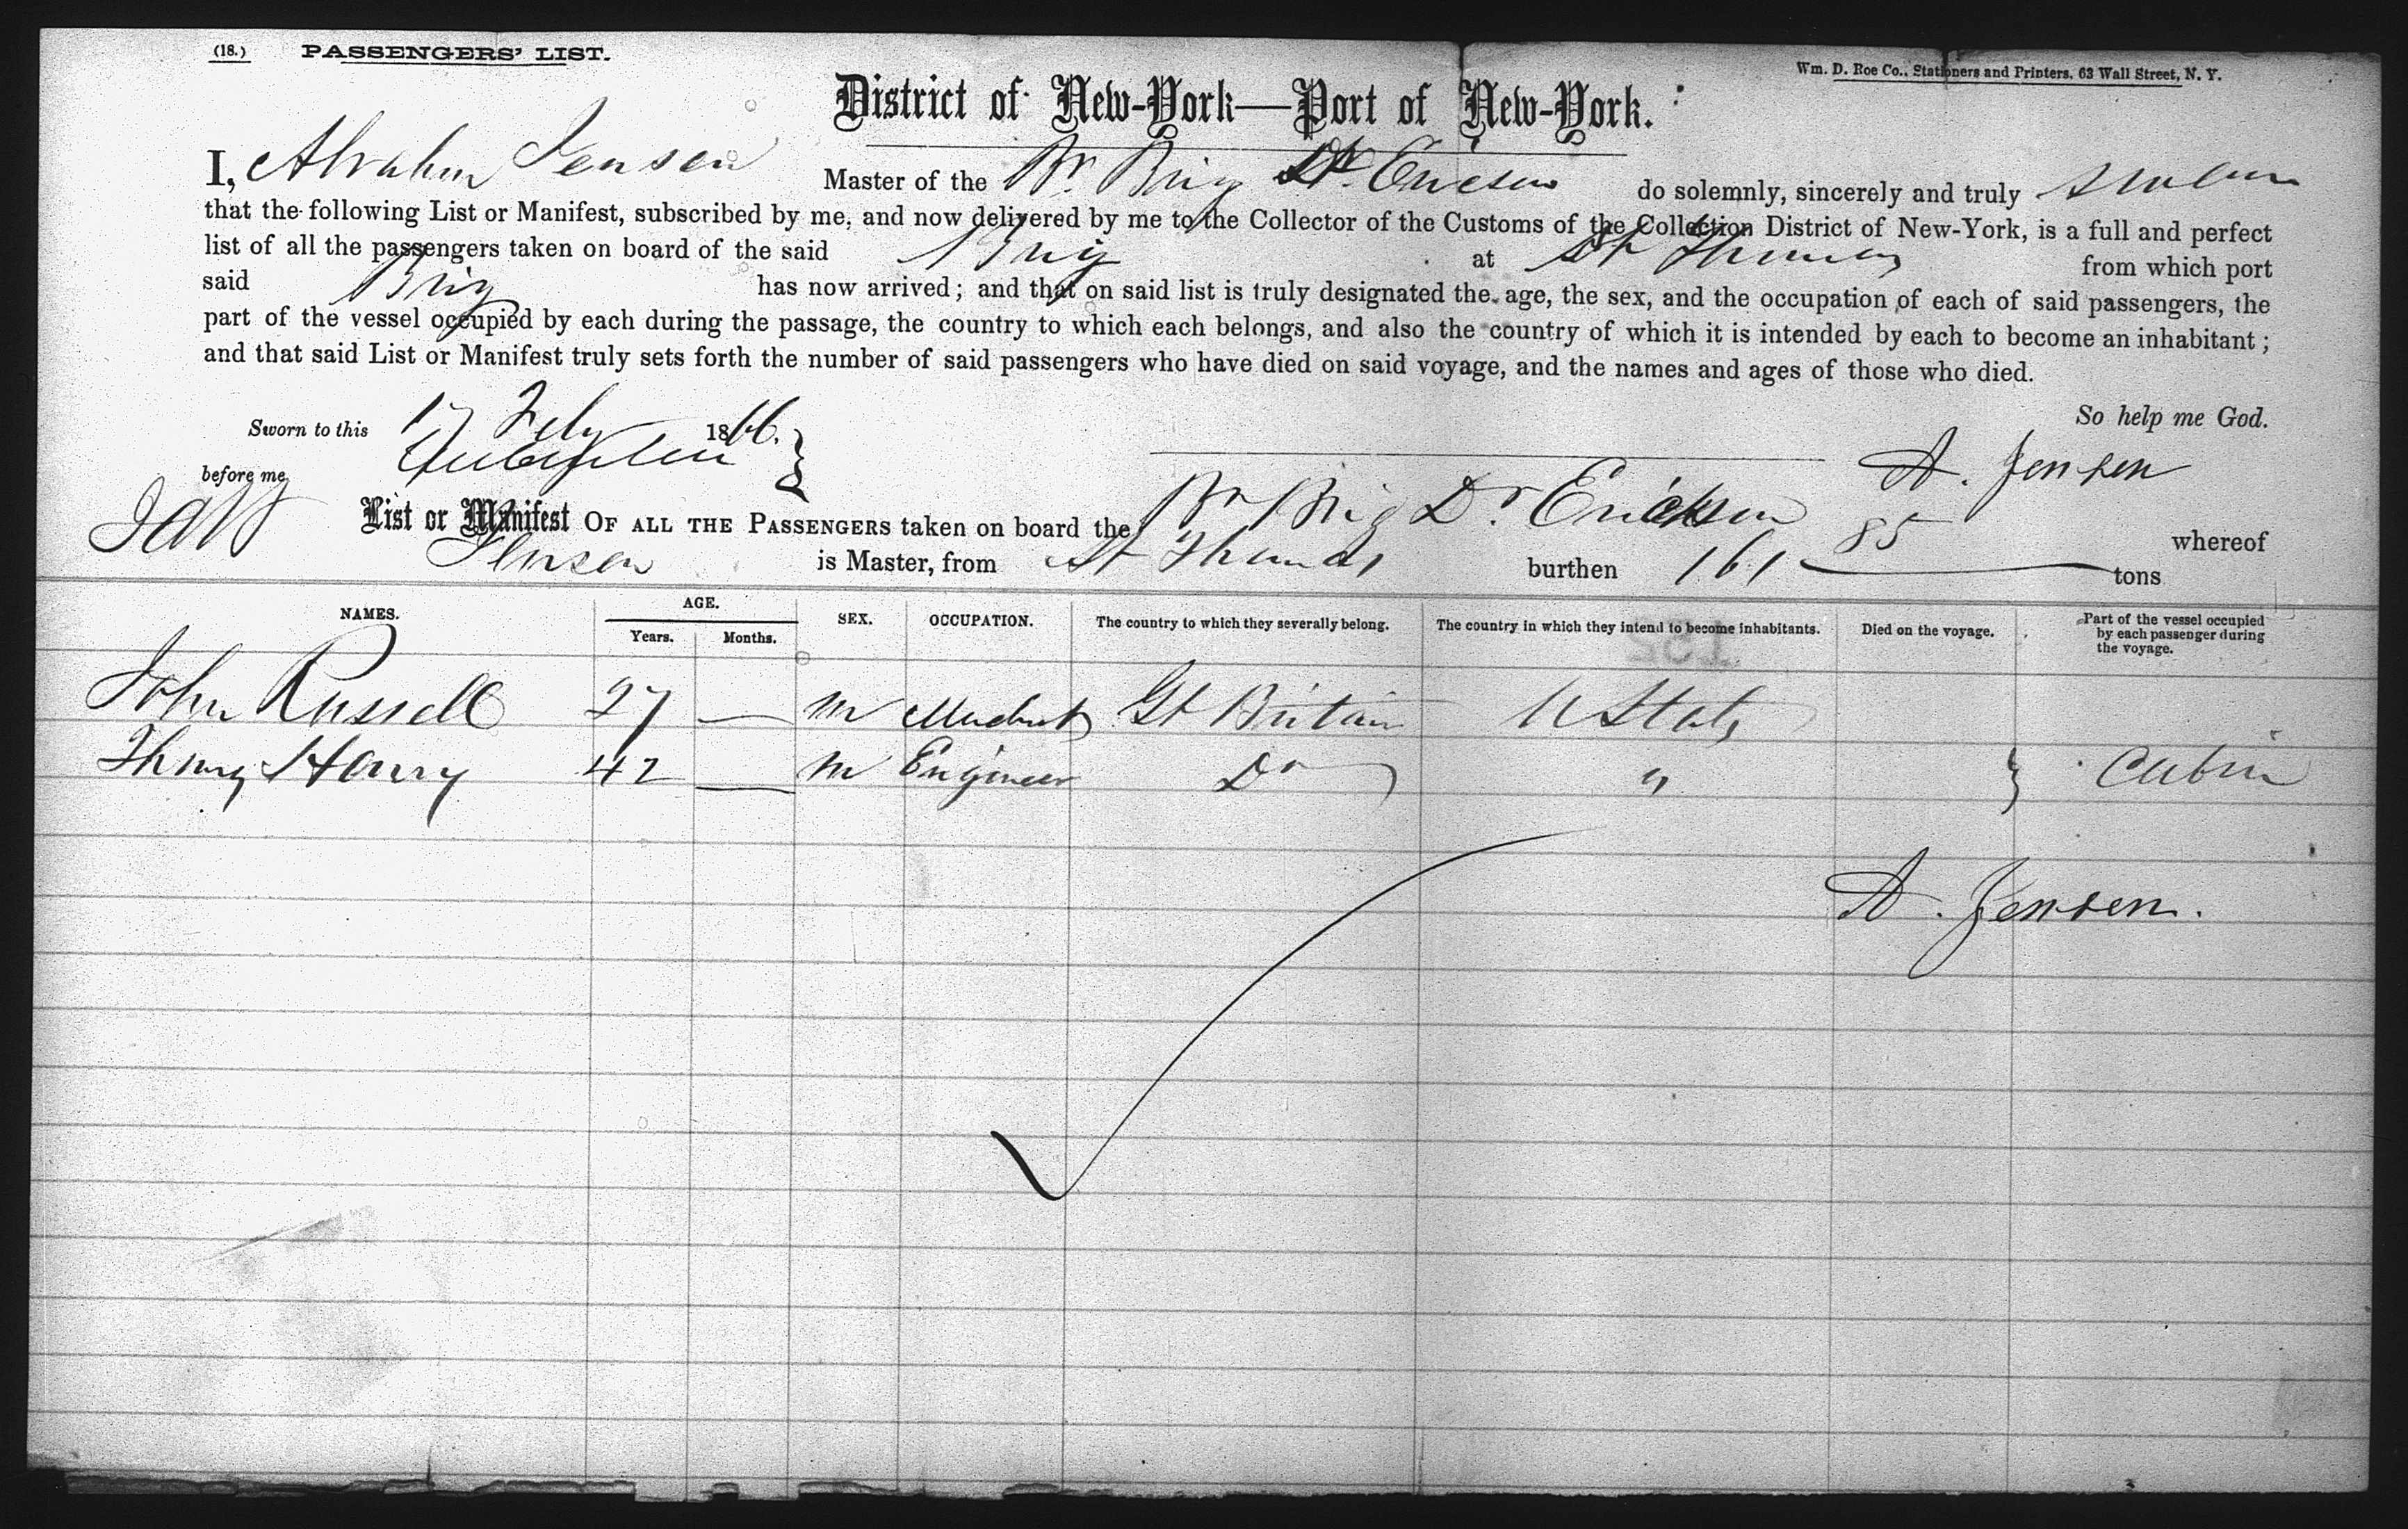 (18.) PASSENGERS' LIST.
Wm. D. Roe Co., Stationers and Printers, 63 Wall Street, N. Y.
District of New-York—Port of New-York.
I, Abrahm Jensen Master of the Br. Brig Dr. Ericson do solemnly, sincerely and truly swear
that the following List or Manifest, subscribed by me, and now delivered by me to the Collector of the Customs of the Collection District of New-York, is a full and perfect
list of all the passengers taken on board of the said Brig at St Thomas from which port
said Brig has now arrived; and that on said list is truly designated the age, the sex, and the occupation of each of said passengers, the
part of the vessel occupied by each during the passage, the country to which each belongs, and also the country of which it is intended by each to become an inhabitant;
and that said List or Manifest truly sets forth the number of said passengers who have died on said voyage, and the names and ages of those who died.
So help me God.
Sworn to this 17 Feby 1866.
before me
A. Jensen
List or Manifest OF ALL THE PASSENGERS taken on board the Br Brig Dr Erickson whereof
Jensen is Master, from St Thomas burthen 161 85 tons
NAMES. AGE. SEX. OCCUPATION. The country to which they severally belong. The country in which they intend to become inhabitants. Died on the voyage. Part of the vessel occupied by each passenger during the voyage.
Years. Months.
John Russell 27 — m Gt Britain U States
Thomas Henry 42 — m Engineer Do " } Cabin
A. Jensen.